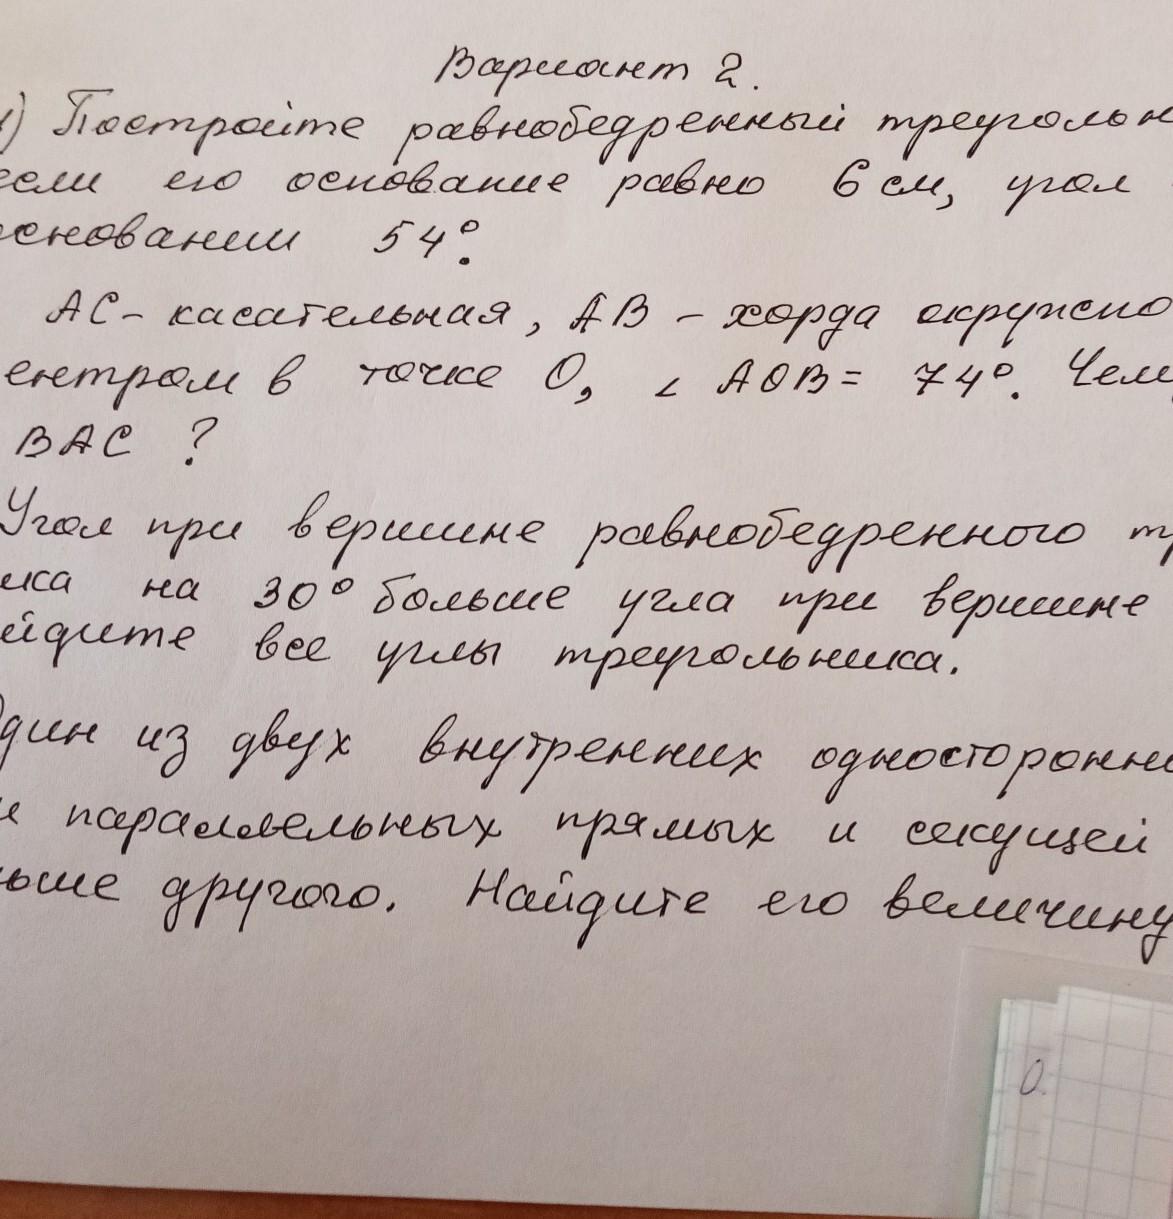 Вариант 2.
1) Постройте равнобедренный треугольн
если его основание равно 6 см, угол
основании 54°.
АС - касательная, АВ - хорда окружно
ентром в точке О, ∠ АОВ = 74°. Чему
ВАС ?
Угол при вершине равнобедренного тр
ика на 30° больше угла при вершине
йдите все углы треугольника.
Один из двух внутренних односторонни
и параллельных прямых и секущей
ньше другого. Найдите его величину
О.